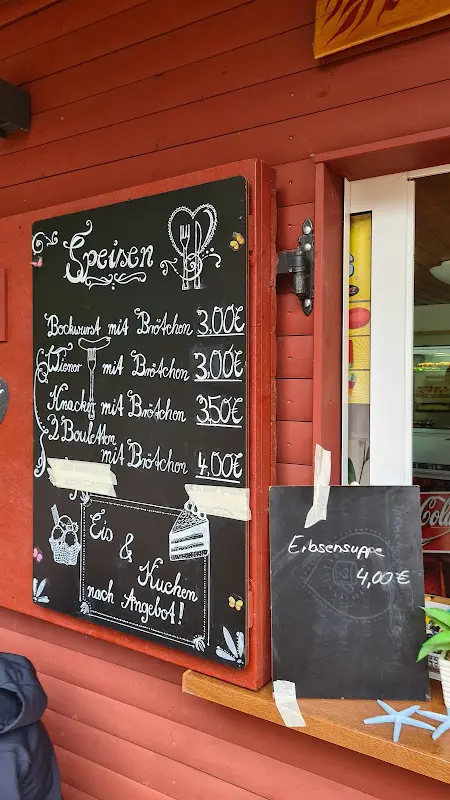 Speisen
Bockwurst mit Brötchen 3.00€
Wiener mit Brötchen 3.00€
Knacker mit Brötchen 3.50€
2 Bouletten
mit Brötchen 4.00€
Eis
&
Kuchen
nach Angebot!
Erbsensuppe
4,00€